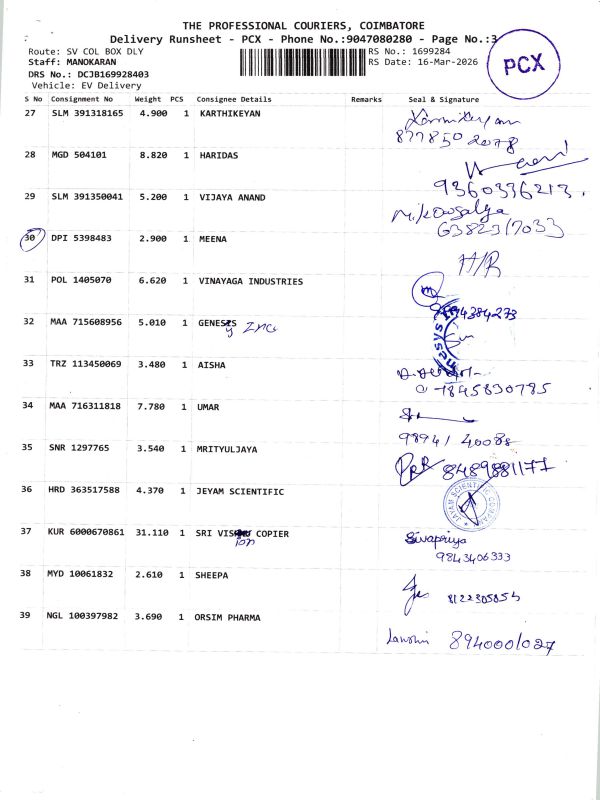 THE PROFESSIONAL COURIERS, COIMBATORE
Delivery Runsheet - PCX - Phone No.:9047080280 - Page No.:3
PCX
Route: SV COL BOX DLY
RS No.: 1699284
Staff: MANOKARAN
RS Date: 16-Mar-2026
DRS No.: DCJB169928403
Vehicle: EV Delivery
S No Consignment No Weight PCS Consignee Details Remarks Seal & Signature
27 SLM 391318165 4.900 1 KARTHIKEYAN
Karthikeyan
8778502078
28 MGD 504101 8.820 1 HARIDAS
9360336213.
29 SLM 391350041 5.200 1 VIJAYA ANAND
M. Kowsalya
6382317033
30 DPI 5398483 2.900 1 MEENA
H/R
31 POL 1405070 6.620 1 VINAYAGA INDUSTRIES
4384273
32 MAA 715608956 5.010 1 GENESIS
33 TRZ 113450069 3.480 1 AISHA
9845830785
34 MAA 716311818 7.780 1 UMAR
98941 40088
35 SNR 1297765 3.540 1 MRITYULJAYA
8489881177
36 HRD 363517588 4.370 1 JEYAM SCIENTIFIC
JAYAM SCIENTIFIC COMPANY
37 KUR 6000670861 31.110 1 SRI COPIER
Sivapriya
9843406333
38 MYD 10061832 2.610 1 SHEEPA
39 NGL 100397982 3.690 1 ORSIM PHARMA
8940001027